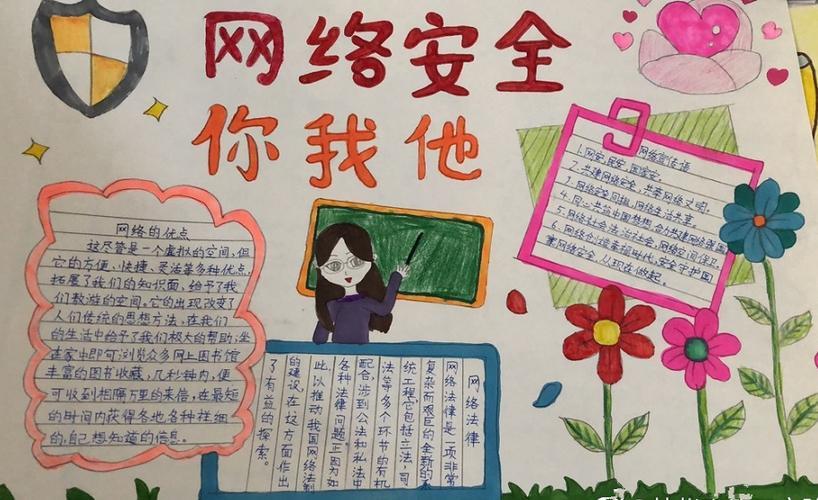 网络安全
你我他
网络的优点
这尽管是一个虚拟的空间,但
它的方便、快捷、灵活等多种优点,
拓展了我们的知识面,给予了我
们敖游的空间。它的出现改变了
人们传统的思想方法,在我们
的生活中给予了我们极大的帮助,坐
在家中即可浏览众多网上图书馆
丰富的图书收藏,几秒钟内,便
可收到相隔万里的来信,在最短
的时间内获得各地各种详细
的,自己想知道的信息。
网络法律
网络法律是一项非常
复杂而艰巨的全新的系
统工程,它包括立法,司
法等多个环节的有机
配合,涉到公法和私法中
各种法律问题,正因为如
此,以推动我国网络法制
的建设,在这方面作出
了有益的探索。
网络宣传语
1.网安,民安,国家安。
2.共建网络安全,共享网络文明。
3.网络安全同担,网络生活共享。
5.网络社会法治社会,网络空间
安全守护国
家网络安全,从现在做起。